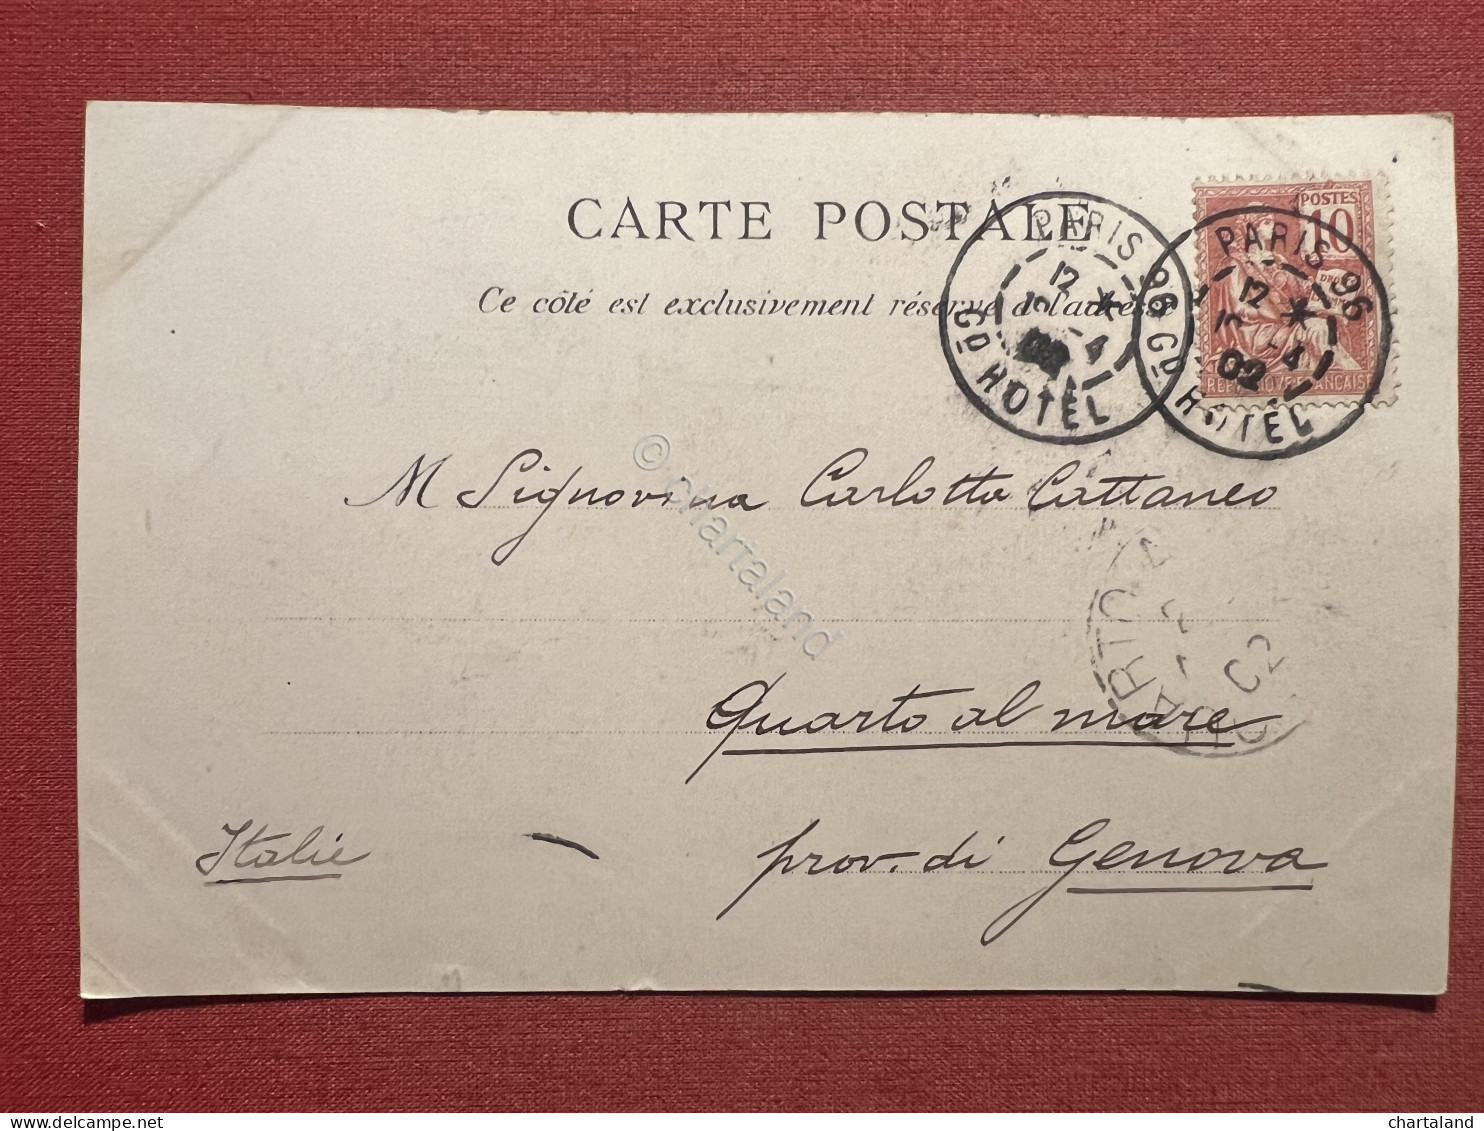 CARTE POSTALE
Ce côté est exclusivement réservé à l'adresse
PARIS 96
12
4
GD HOTEL
POSTES
10
PARIS 96
12
-4
02
GD HOTEL
REPUBLIQUE FRANÇAISE
M Signorina Carlotta Cattaneo
02
Quarto al mare
Italie
prov. di Genova
© chartaland
delcampe.net
chartaland